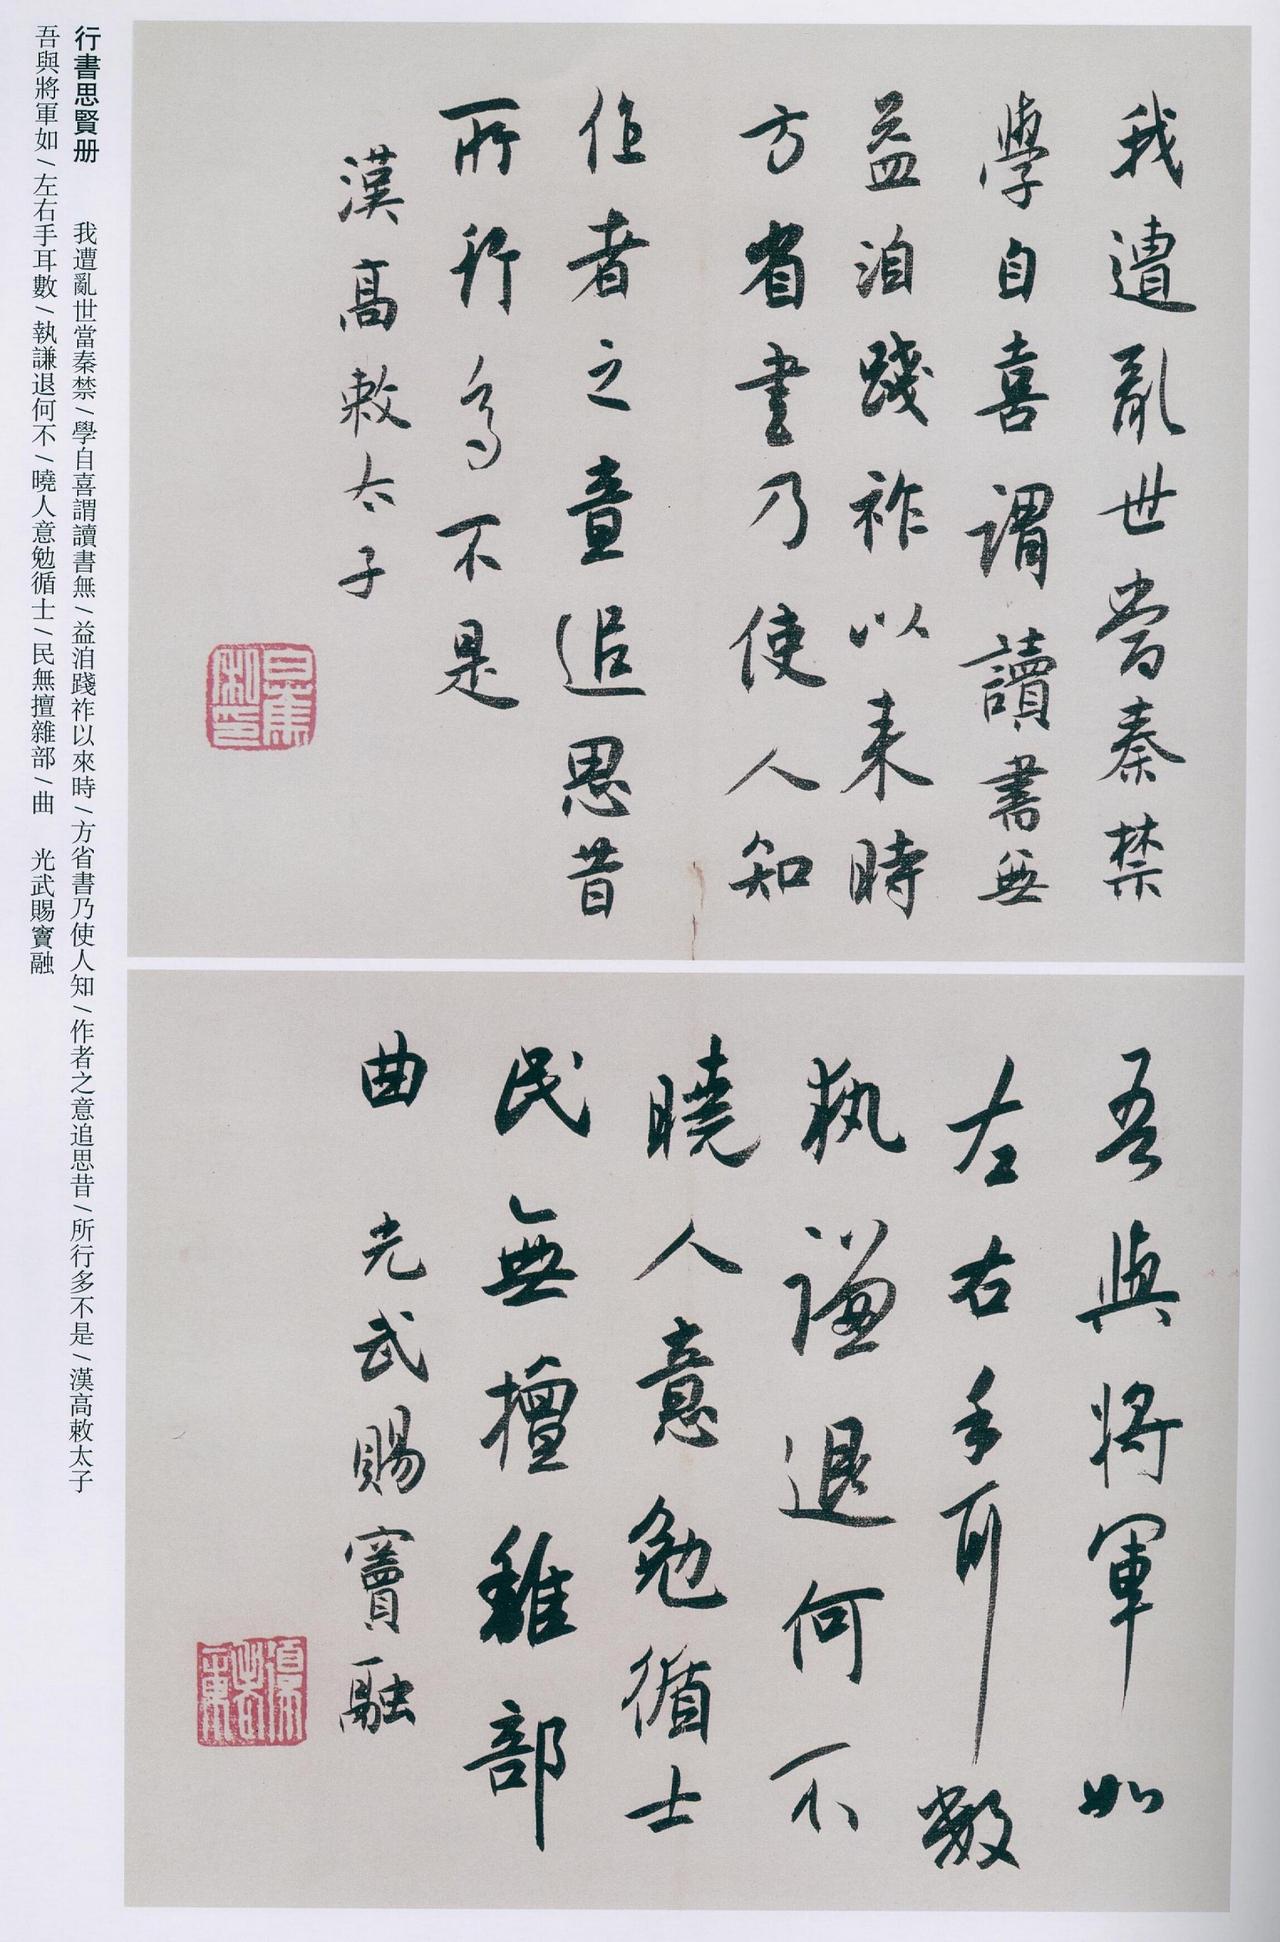 我遭亂世當秦禁
學自喜謂讀書無
益洎踐祚以来時
方省書乃使人知
作者之意追思昔
所行多不是
漢高敕太子
吾與將軍如
左右手耳數
執謙退何不
曉人意勉循士
民無擅雜部
曲 光武賜竇融
行書思賢册 我遭亂世當秦禁/學自喜謂讀書無/益洎踐祚以來時/方省書乃使人知/作者之意追思昔/所行多不是/漢高敕太子
吾與將軍如/左右手耳數/執謙退何不/曉人意勉循士/民無擅雜部/曲 光武賜竇融